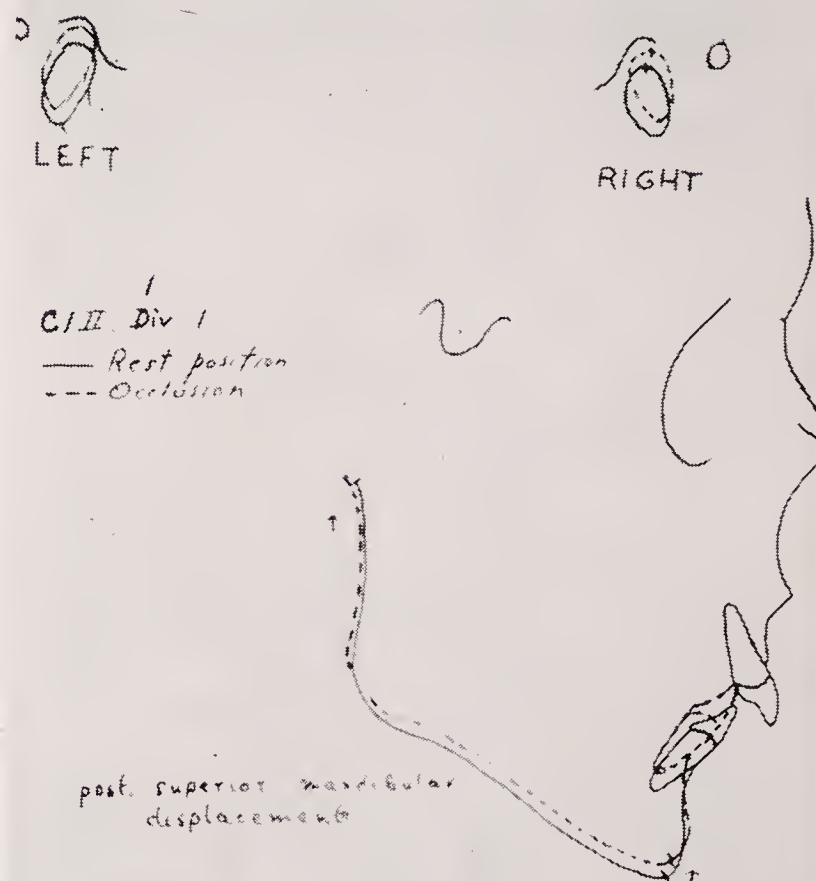 LEFT
RIGHT
Cl II Div 1
Rest position
Occlusion
post. superior mandibular
displacement